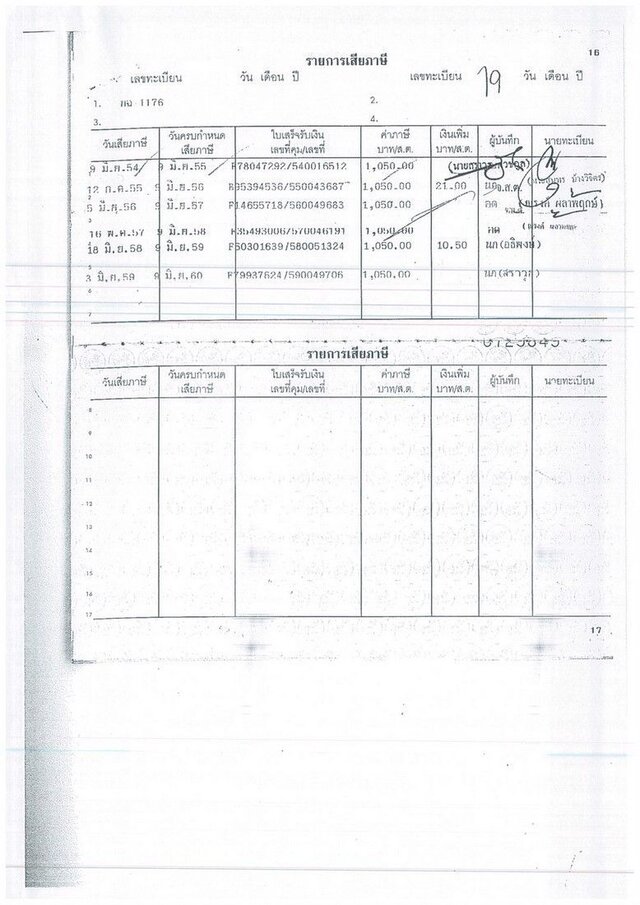 16
รายการเสียภาษี
เลขทะเบียน วัน เดือน ปี เลขทะเบียน วัน เดือน ปี
1. 1176 2.
3. 4.
วันเสียภาษี วันครบกำหนด เสียภาษี ใบเสร็จรับเงิน เล่มที่คุม/เลขที่ ค่าภาษี บาท/ส.ต. เงินเพิ่ม บาท/ส.ต. ผู้บันทึก นายทะเบียน
9 มิ.ย.54 9 มิ.ย.55 78047292/540016512 1,050.00
12 ก.ค.55 9 มิ.ย.56 95394536/550043687 1,050.00 21.00 จ.ส.ต.
5 มิ.ย.56 9 มิ.ย.57 14655718/560049683 1,050.00 ผลาพฤกษ์)
16 พ.ค.57 9 มิ.ย.58 35493006/570046191 1,050.00
18 มิ.ย.58 9 มิ.ย.59 60301639/580051324 1,050.00 10.50
3 มิ.ย.59 9 มิ.ย.60 79937624/590049706 1,050.00
6
7
รายการเสียภาษี
วันเสียภาษี วันครบกำหนด เสียภาษี ใบเสร็จรับเงิน เล่มที่คุม/เลขที่ ค่าภาษี บาท/ส.ต. เงินเพิ่ม บาท/ส.ต. ผู้บันทึก นายทะเบียน
8
9
10
11
12
13
14
15
16
17
17